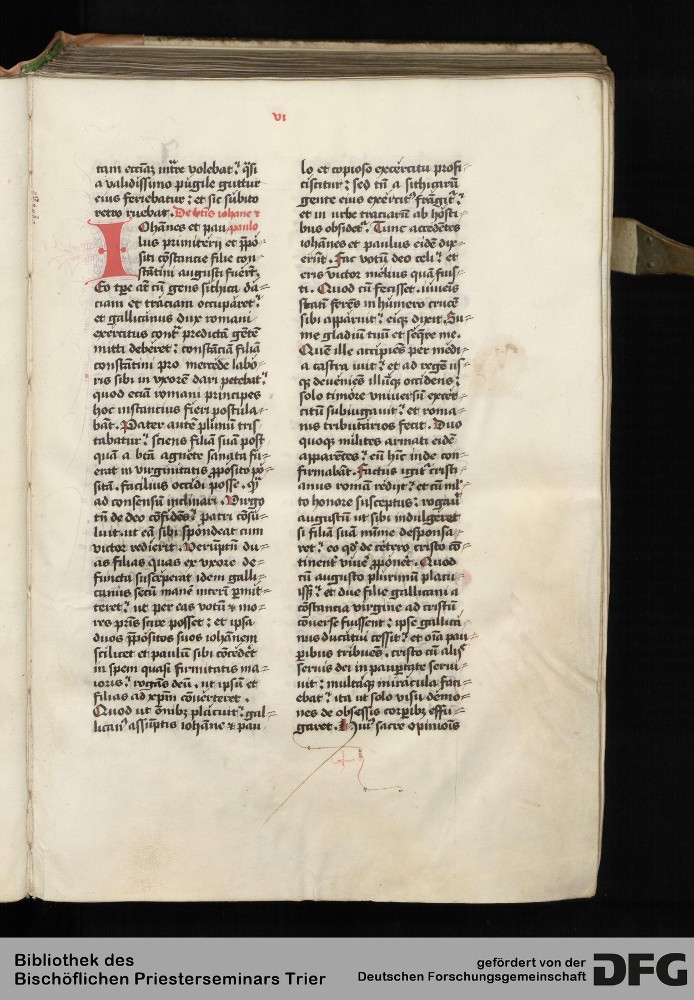 vi
tam ecciaz intͬre volebat: qͣsi
a validissimo pugile guttur
eius feriebatur: et sic subito
retro ruebat. De sctis iohane ⁊
paulo
IOhānes et pau
lus primiterij et p̄po
siti cōstancie filie con
stātini augusti fuerūt.
Eo tꝑe at cū gens sithica da
ciam et traciam occuparet:
et gallicanus dux romani
exercitus contͣ predictā gētē
mitti deberet: constāciā filiā
constātini pro mercede labo
ris sibi in vxorē dari petebat:
quod eciā romani principes
hoc instantius fieri postula
bāt. Pater autē plimū tris
tabatur: sciens filiā suā post
quā a btā agnete sanata fu
erat in virginitatis ꝓposito po
sitā. facilius occidi posse. qͣ
ad consensū inclinari. Virgo
tn̄ de deo cōfidēs: patri cōsu
luit. ut eā sibi spondeat cum
victor redierit. Verūptn̄ du
as filias quas ex vxore de
functa susceperat idem galli
canus secū manē interī ꝑmit
teret: ut per eas votū ⁊ mo
res pr̄is scire posset: et ipsa
duos p̄positos suos iohānem
scilicet et paulū sibi cōcedēt
in spem quasi firmitatis ma
ioris: rogās deū. ut ipsū et
filias ad xp̄m cōuerteret.
Quod ut om̄ibꝫ placuit: gal
licanꝰ assūptis iohāne ⁊ pau
lo et copioso exercitu profi
ciscitur: sed tn̄ a sithigarū
gente eius exercitꝰ frāgitͬ:
et in urbe traciarū ab hosti
bus obsidetͬ. Tunc accedētes
iohānes et paulus eidē dix
erūt. Fac votū deo celi: et
eris victor melius quā fuis
ti. Quod cū fecisset. iuueis
statī ferēs in humero crucē
sibi apparuit: eiqꝫ dixit. Su
me gladiū tuū et seqͣre me.
Quē ille accipiēs per medi
a castra ruit: et ad regē us
qꝫ deueniēs illūqꝫ occidens:
solo timore uniuersū exer
citū subiugauit: et roma
nis tributarios fecit. Duo
quoqꝫ milites armati eidē
apparētes: eū hīc inde con
firmabāt. Factus igitͬ cristi
anus romā redijt: et cū ml̓
to honore susceptus: rogauͥ
augustū ut sibi indulgeret
si filiā suā mīme desponsa
ret: eo qd̓ de cetero cristo cō
tinent viuē ꝓponēt. Quod
cū augusto plurimū placu
iss̓: et due filie gallicani a
cōstancia virgine ad cristū
cōuerse fuissent: ipse gallica
nus ducatui cessit: et oīa pau
ꝑibus tribuēs. cristo cū alijs
seruis dei in pauꝑtate serui
uit: multaqꝫ miracula faci
ebat: ita ut solo visu demo
nes de obsessis corꝑibꝫ effu
garet. Huiꝰ sacre opinionis
Bibliothek des
Bischöflichen Priesterseminars Trier
gefördert von der
Deutschen Forschungsgemeinschaft
DFG